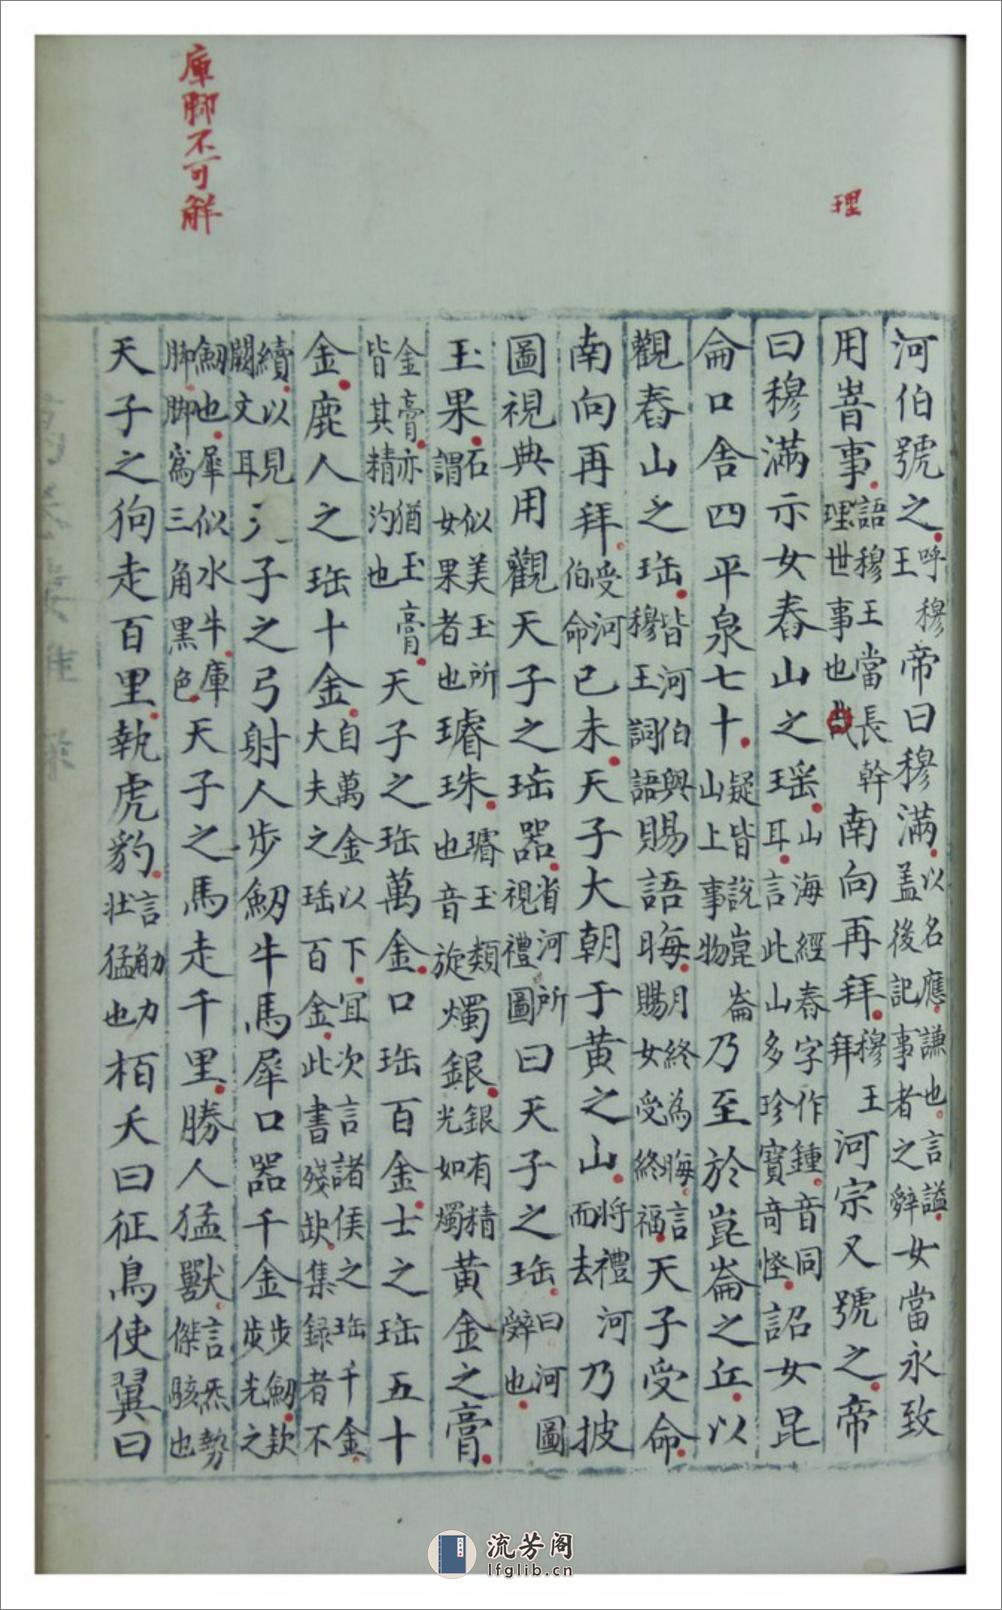 理
庫脚不可解
河伯號之呼穆王帝曰穆滿以名應謙也言謚蓋後記事者之辭女當永致
用旹事語穆王當長幹理世事也南向再拜穆王拜河宗又號之帝
曰穆滿示女舂山之瑤山海經舂字作鍾音同耳言此山多珍寶奇怪詔女昆
侖口舍四平泉七十疑皆說崑崙山上事物乃至於崑崙之丘以
觀舂山之珤皆河伯與穆王詞語賜語晦月終為晦言賜女受終福天子受命
南向再拜受河伯命已未天子大朝于黃之山將禮河而去乃披
圖視典用觀天子之珤器省河所視禮圖曰天子之珤曰河圖辭也
玉果石似美玉所謂女果者也璿珠璿玉類也音旋燭銀銀有精光如燭黃金之膏
金膏亦猶玉膏皆其精汋也天子之珤萬金口珤百金士之珤五十
金鹿人之珤十金自萬金以下宜次言諸侯之珤千金大夫之珤百金此書殘缺集録者不
續以見闕文耳天子之弓射人步劒牛馬犀口器千金步劒欵步光之
劒也犀似水牛庫脚脚寫三角黑色天子之馬走千里勝人猛獸言炁勢傑駭也
天子之狗走百里執虎豹言觔力壯猛也栢夭曰征鳥使翼曰
流芳阁
lfglib.cn